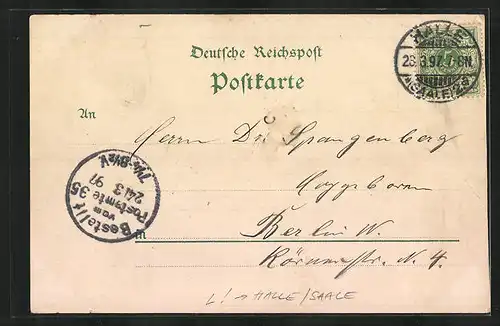 Deutsche Reichspost
Postkarte
HALLE
23.3.97.7-8N.
(SAALE)2
An
Herrn Dr. Spangenberg
Hochgeboren
Bestellt
vom
Postamte 35
24/3 97
7¼-8½ V
in
Berlin W.
Körnerstr. N. 4.
L! → HALLE/SAALE